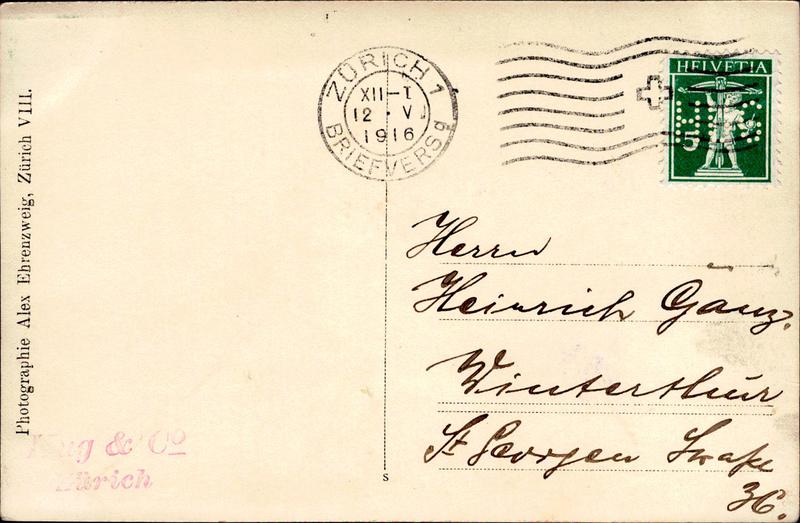 Photographie Alex Ehrenzweig, Zürich VIII.
ZÜRICH 1
XII-I
12 · VI
1916
BRIEFVERSg
HELVETIA
5
Herrn
Heinrich Ganz.
Winterthur
St Georgen Strasse
36.
& Co
Zürich
S